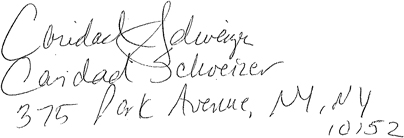 Caridad Schweizer
Caridad Schweizer
375 Park Avenue, NY, NY
10152